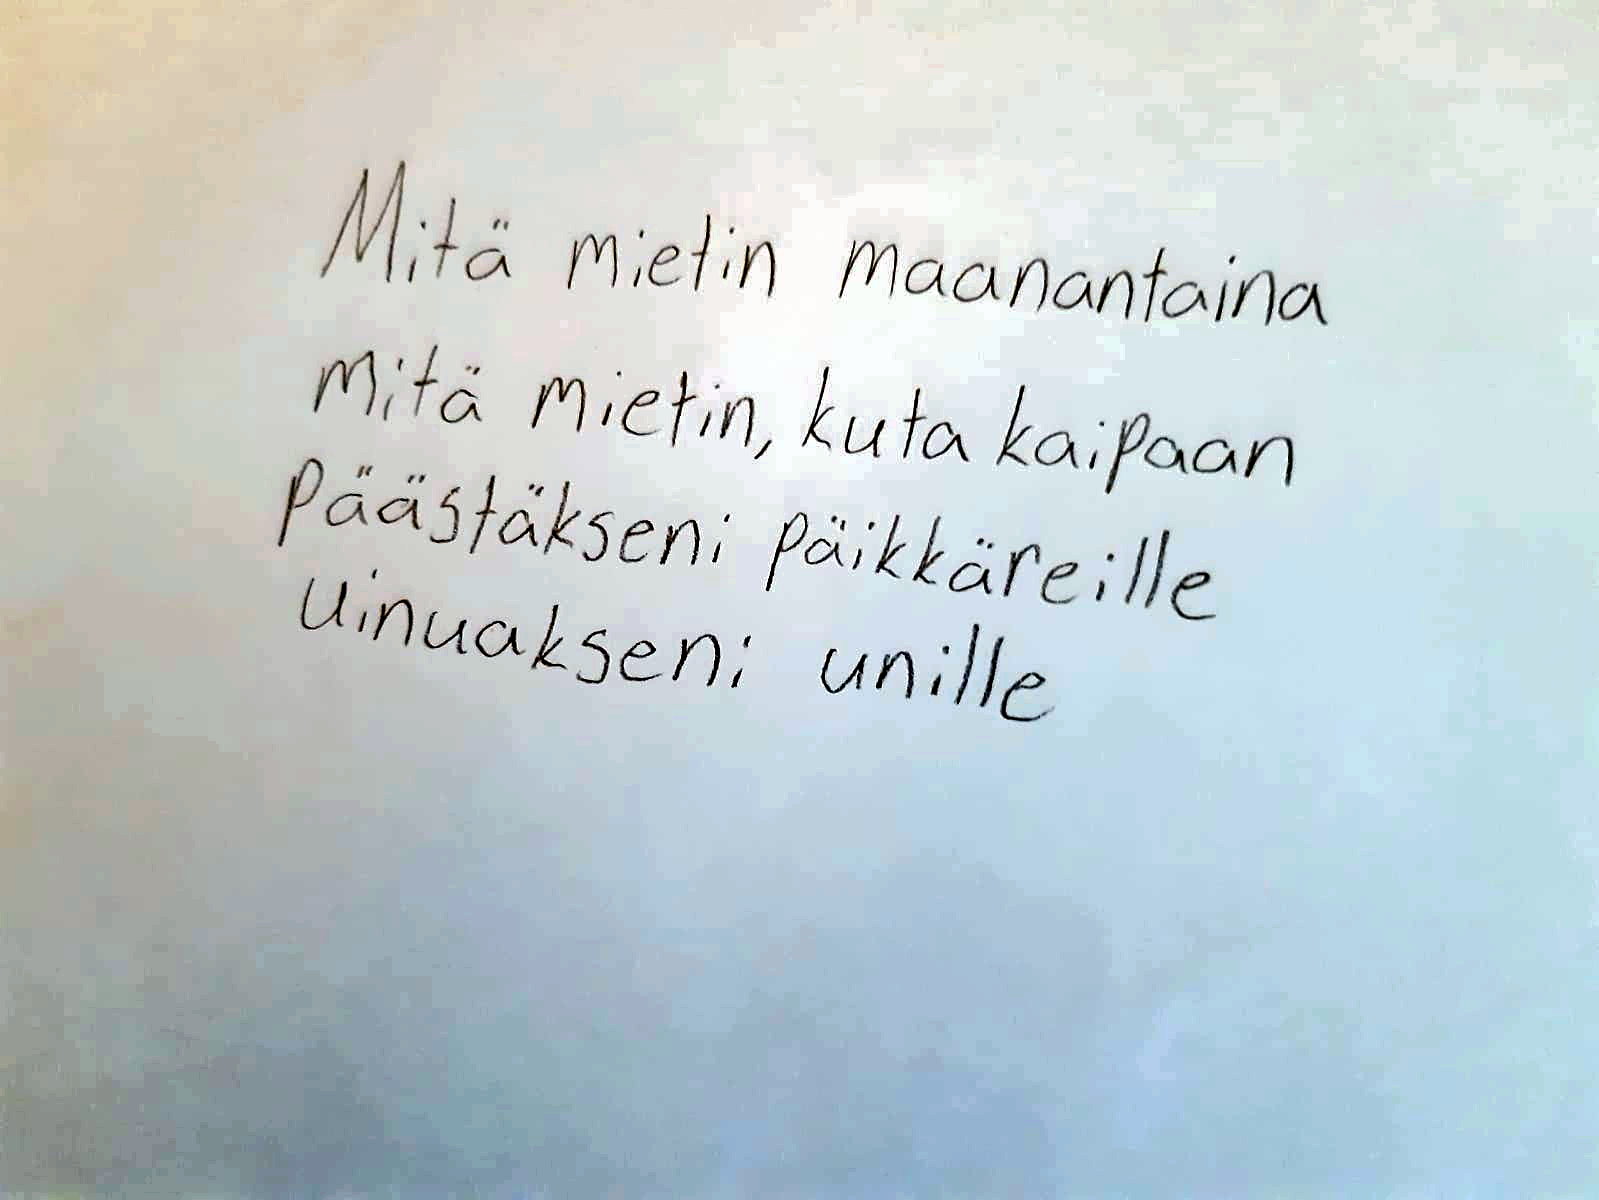 Mitä mietin maanantaina
mitä mietin, kuta kaipaan
päästäkseni päikkäreille
uinuakseni unille